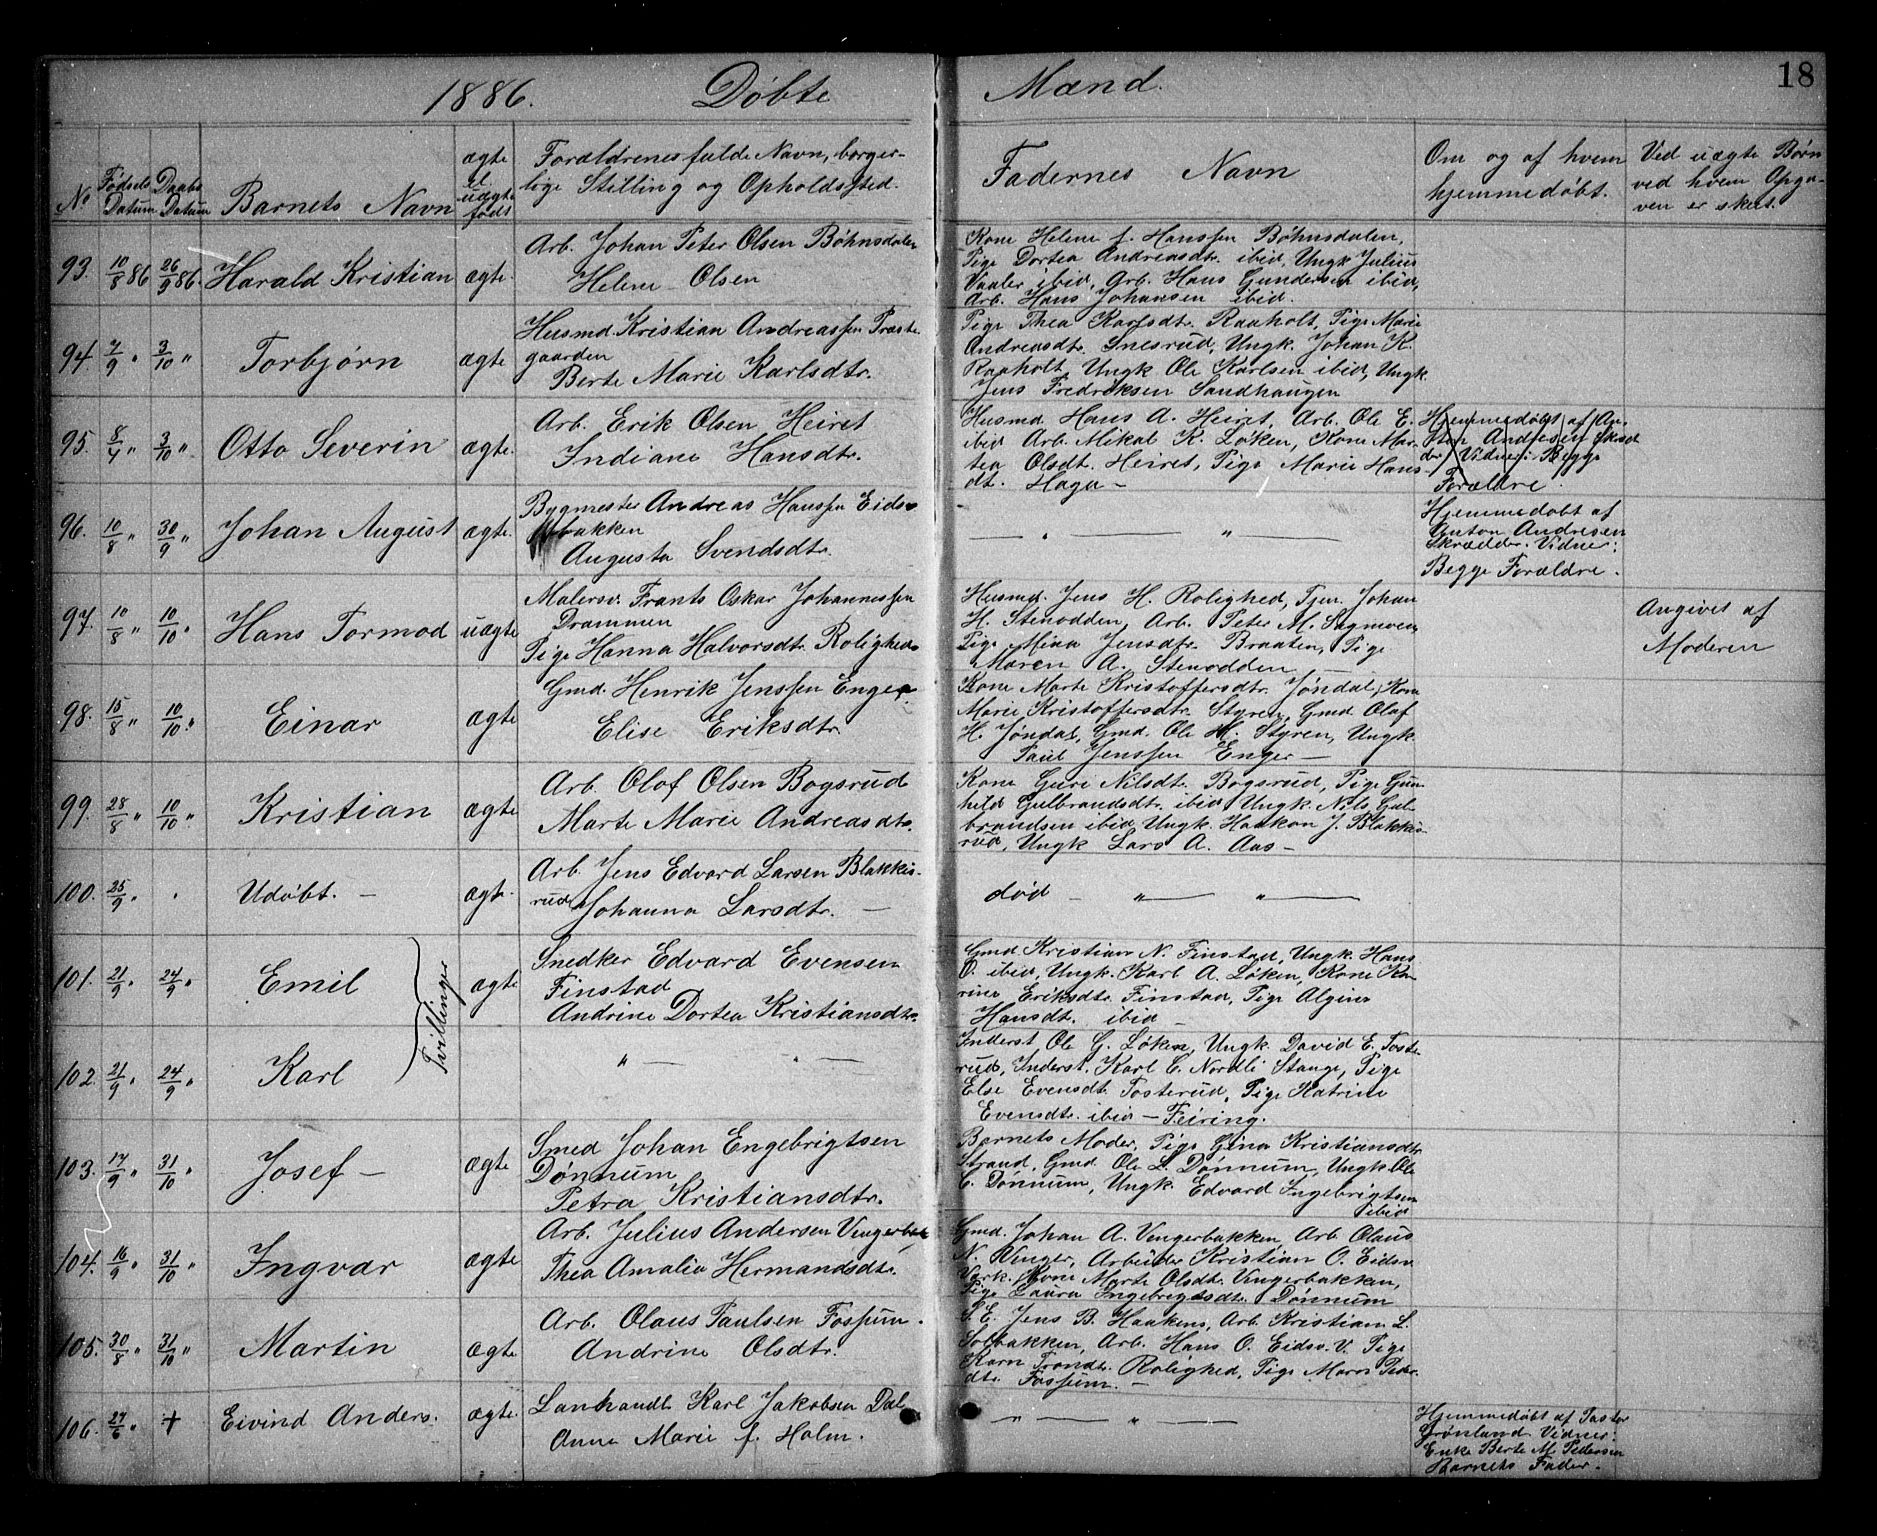 1886. Døbte Mænd. 18
No Fødsels Datum Daabs Datum Barnets Navn ægte el uægte født Forældrenes fulde Navn, borger-
lige Stilling og Opholdssted. Fadernes Navn Om og af hvem
hjemmedøbt. Ved uægte Børn
ved hvem Opga-
ven er skeet.
93. 10/8 86 26/9 86. Harald Kristian ægte. Arb. Johan Peter Olsen Bøhnsdalen
Helene Olsen
Kone Helene f. Hanssen Bøhnsdalen,
Pige Dortea Andreasdtr. ibid, Ungk Julius
Vaaler ibid, Arb. Hans Gundersen ibid,
Arb. Hans Johansen ibid.
94. 7/9 " 3/10 " Torbjørn ægte Husmd. Kristian Andreassen Præste
gaarden
Berte Marie Karlsdtr.
Pige Thea Karlsdtr. Raaholt, Pige Marie
Andreasdtr. Snesrud, Ungk. Johan K.
Raaholt, Ungk Ole Karlsen ibid, Ungk
Jens Fredriksen Sandhaugen
95. 8/7 " 3/10 " Otto Severin ægte. Arb. Erik Olsen Heiret
Indiane Hansdtr.
Husmd. Hans A. Heiret, Arb. Ole E.
ibid Arb. Mikal K. Løken, Kone Mar-
tea Olsdt. Heiret, Pige Marie Hans-
dt. Haga -
Hjemmedøbt af An-
ton Andresen Skræd
der Vidner: Begge
Forældre
96. 10/8 " 30/9 " Johan August ægte. Bygmester Andreas Hanssen Eids-
bakken
Augusta Svendsdtr.
— " — " —
Hjemmedøbt af
Anton Andresen
Skrædder. Vidner:
Begge Forældre.
97. 10/8 " 10/10 " Hans Tormod uægte Malersv. Frants Oskar Johannessen
Drammen
Pige Hanna Halvorsdtr. Rolighed
Husmd. Jens H. Rolighed, Tjen. Johan
H. Stenodden, Arb. Peter M. Sagmoen
Pige Mina Jensdtr. Braaten, Pige
Maren A. Stenodden —
Angivet af
Moderen
98. 15/8 " 10/10 " Einar ægte Gmd. Henrik Jenssen Enger.
Elise Eriksdtr.
Kone Marte Kristoffersdtr. Jøndal, Kone
Marie Kristoffersdtr. Styren, Gmd. Olaf
H. Jøndal, Gmd. Ole H. Styren, Ungk
Paul Jenssen Enger —
99. 28/8 " 10/10 " Kristian ægte Arb. Olof Olsen Bogsrud
Marte Marie Andreasdtr.
Kone Guri Nilsdt. Bogsrud, Pige Gun-
hild Gulbrandsdtr. ibid Ungk. Nils Gul-
brandsen ibid Ungk. Haakon J. Blakkis-
rud, Ungk Lars A. Aas -
100. 25/9 " Udøbt. — ægt. Arb. Jens Edvard Larsen Blakkis-
rud Johanna Larsdtr. —
død — " — " —
101. 21/9 " 24/9 " Emil Tvillinger ægte Snedker Edvard Evensen
Finstad
Andrine Dortea Kristiansdtr.
Gmd. Kristian N. Finstad, Ungk. Hans
O. ibid, Ungk. Karl A. Løken, Kone Ka-
rine Eriksdtr. Finstad, Pige Algine
Hansdt. ibid —
102. 21/9 " 24/9 " Karl " — " —
Inderst Ole G. Løken, Ungk. David E. Toste-
rud, Inderst. Karl C. Nordli Stange, Pige
Else Evensdt. Tosterud, Pige Katrine
Evensdtr. ibid - Feiring.
103. 17/9 " 31/10 " Josef — ægte Smed Johan Engebrigtsen
Dønnum
Petra Kristiansdtr.
Barnets Moder, Pige Gina Kristiansdtr
Strand, Gmd. Ole L. Dønnum, Ungk. Ole
E. Dønnum, Ungk. Edvard Ingebrigtsen
ibid
104. 16/9 " 31/10 " Ingvar ægte Arb. Julius Andersen Vingerbak
Thea Amalia Hermandsdtr.
Gmd. Johan A. Vingerbakken, Arb Olaus
N. Vinger, Arbeider Kristian O. Eidsv.
Værk, Kone Marte Olsdtr. Vingerbakken,
Pige Laura Ingebrigtsdtr. Dønnum
105. 30/8 " 31/10 " Martin ægte Arb. Olaus Paulsen Fossum.
Andrine Olsdtr.
S. E. Jens B. Haakens, Arb. Kristian L.
Solbakken, Arb. Hans O. Eidsv. V. Pige
Karn Trondt. Rolighed, Pige Marn Peder.
dt. Fossum. —
106. 27/6 " + Eivind Anders. ægte. Lanhandl. Karl Jakobsen Dal
Anne Marie f. Holm.
— " — " —
Hjemmedøbt af Pastor
Grønland. Vidner:
Enke Berte M. Pedersen
Barnets Fader.